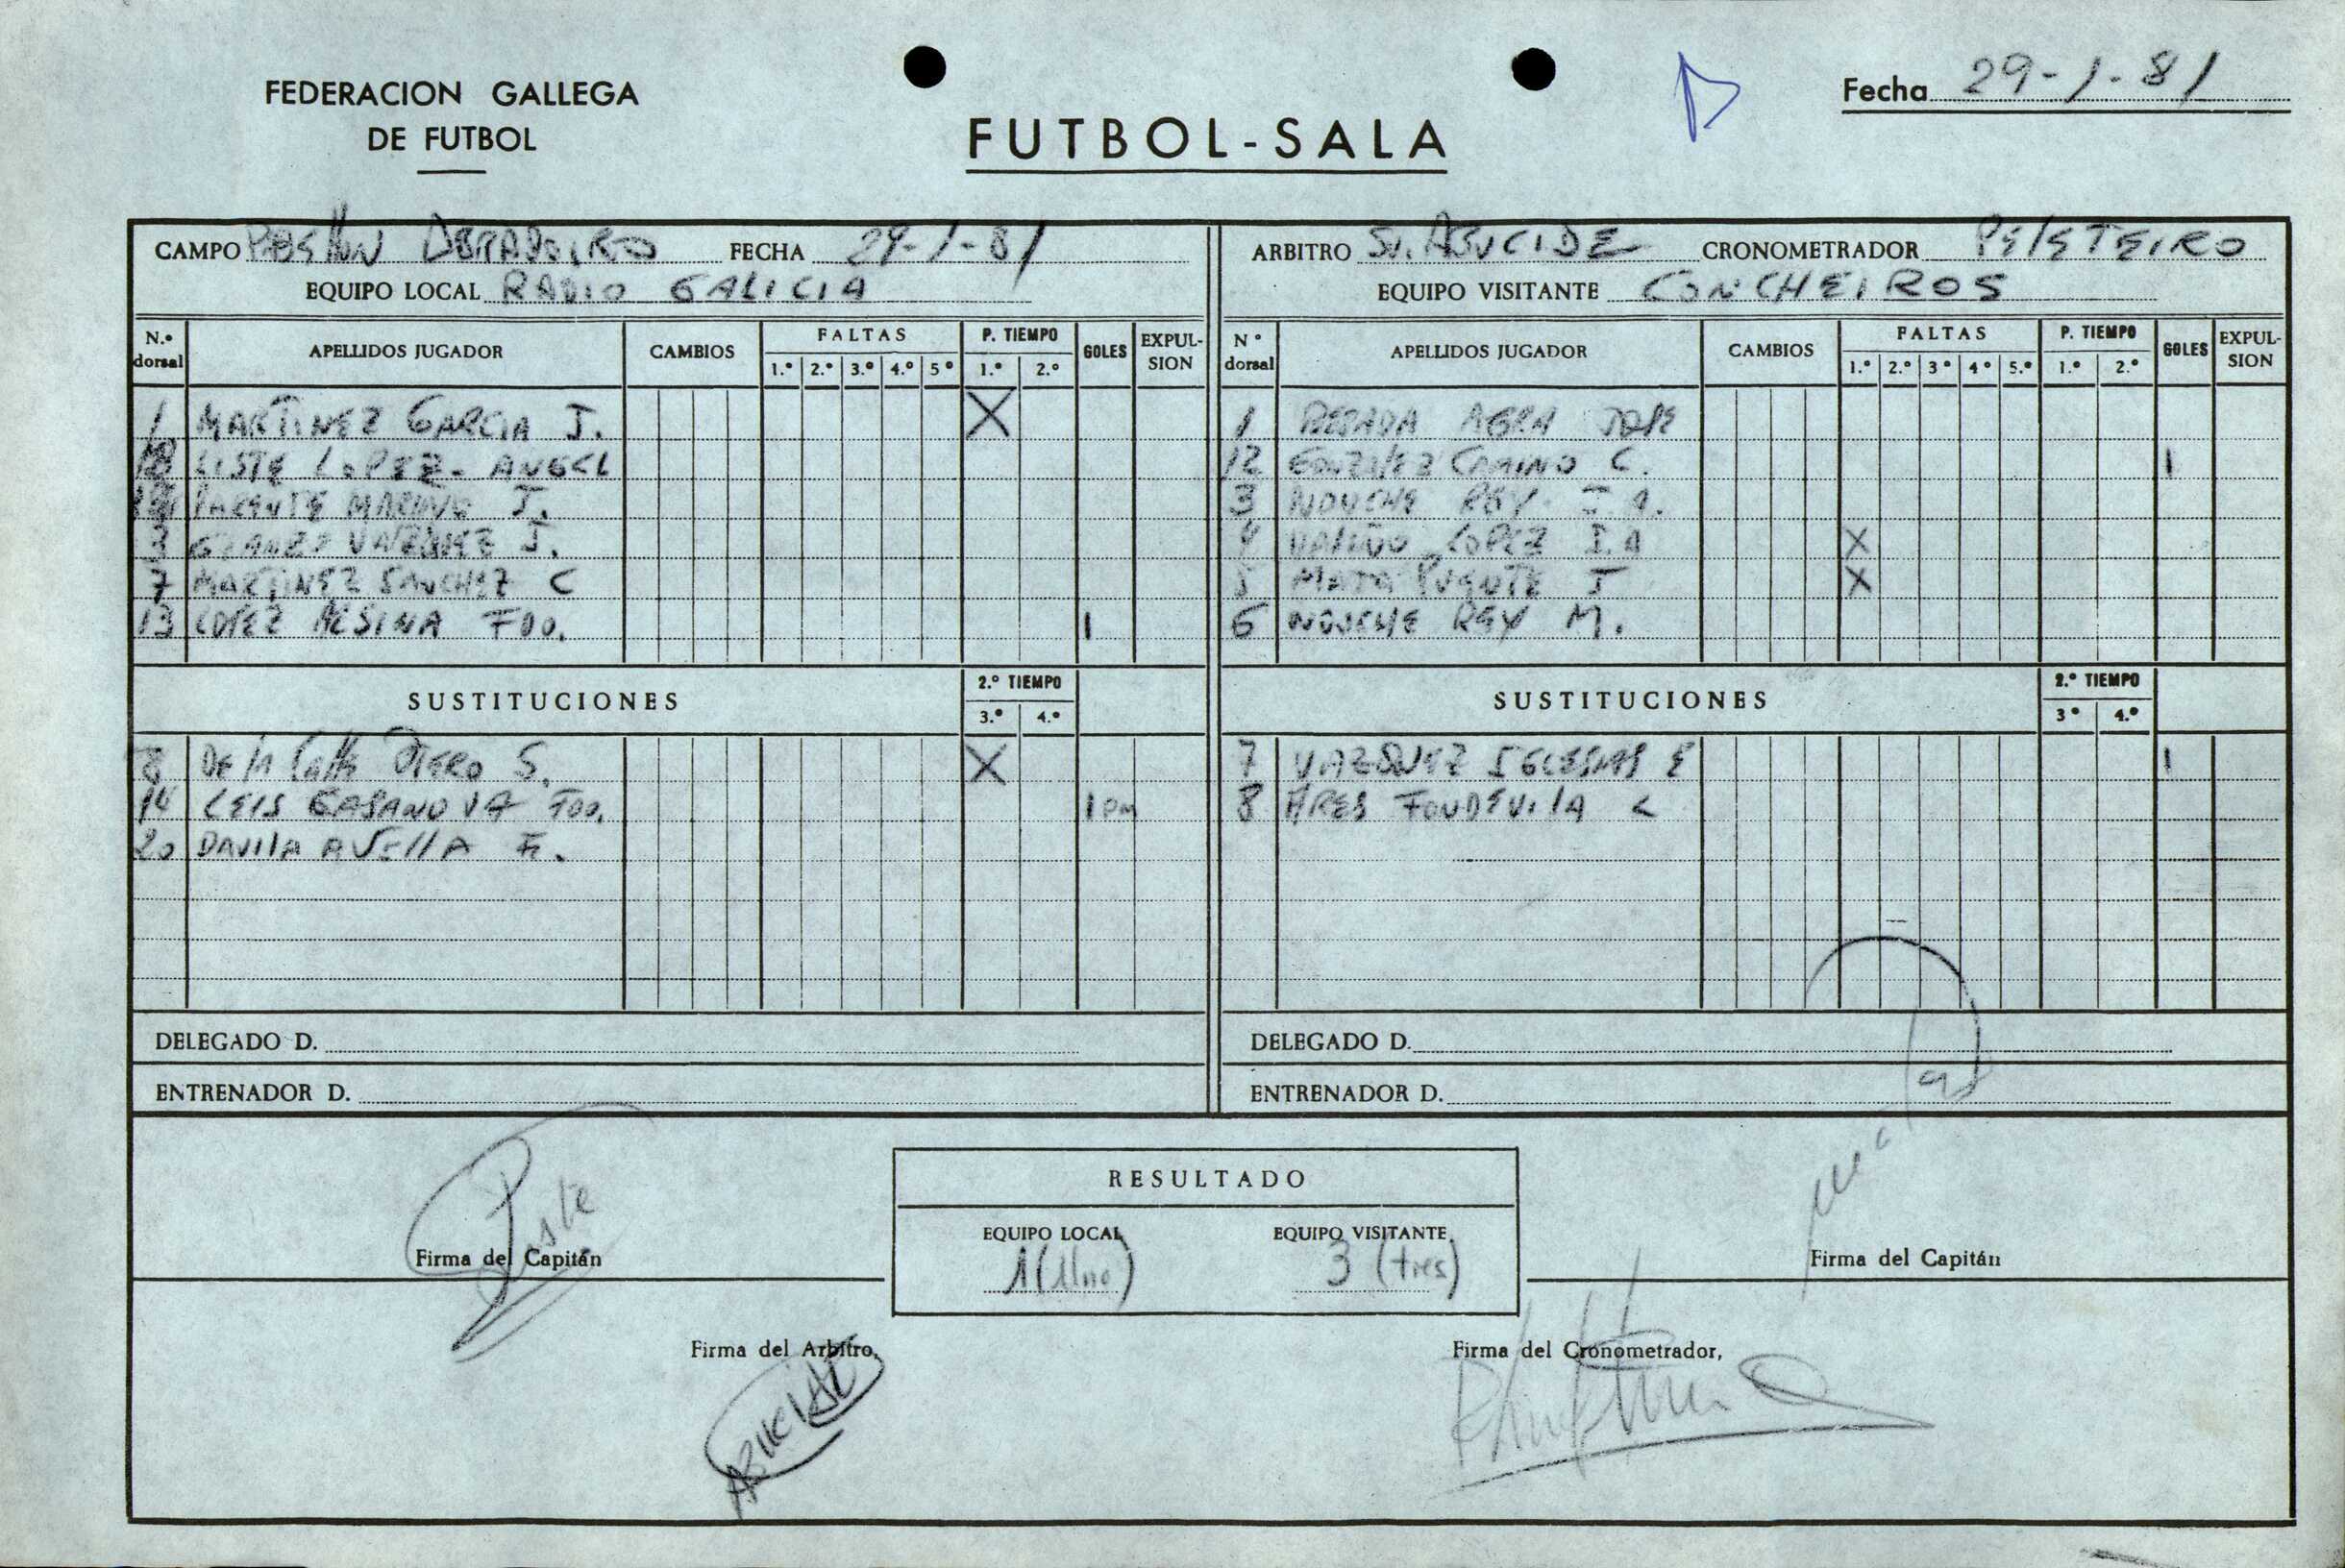 FEDERACION GALLEGA
DE FUTBOL
FUTBOL-SALA
Fecha 29-1-81
CAMPO OBRADOIRO FECHA 29-1-81
EQUIPO LOCAL RADIO GALICIA
N.º dorsal APELLIDOS JUGADOR CAMBIOS FALTAS 1.º 2.º 3.º 4.º 5º P. TIEMPO 1.º 2.º GOLES EXPULSION
1 MARTINEZ GARCIA J. X
LISTE LOPEZ - ANGEL
MARINO J.
3 VAZQUEZ J.
7 MARTINEZ SANCHEZ C
13 LOPEZ MESINA FDO. 1
SUSTITUCIONES 2.º TIEMPO 3.º 4.º
8 DE LA CALLE OTERO S. X
14 LEIS CASANOVA FDO. 1 PM
20 DAVILA AVELLA F.
DELEGADO D.
ENTRENADOR D.
ARBITRO Sr. ABUCIDE CRONOMETRADOR PELETEIRO
EQUIPO VISITANTE CONCHEIROS
N º dorsal APELLIDOS JUGADOR CAMBIOS FALTAS 1.º 2.º 3º 4º 5.º P. TIEMPO 1.º 2.º GOLES EXPULSION
1 AGRA JOSE
12 GONZALEZ CAMINO C. 1
3 NOUCHE REY J.A.
4 LOPEZ J.A X
5 MATO PUENTE J X
6 NOUCHE REY M.
SUSTITUCIONES 2.º TIEMPO 3º 4.º
7 VAZQUEZ IGLESIAS E 1
8 ARES FONDEVILA L
DELEGADO D.
ENTRENADOR D.
RESULTADO
EQUIPO LOCAL EQUIPO VISITANTE
1 (Uno) 3 (tres)
Liste
Firma del Capitán
Firma del Capitán
Firma del Arbitro,
ABUCIDE
Firma del Cronometrador,